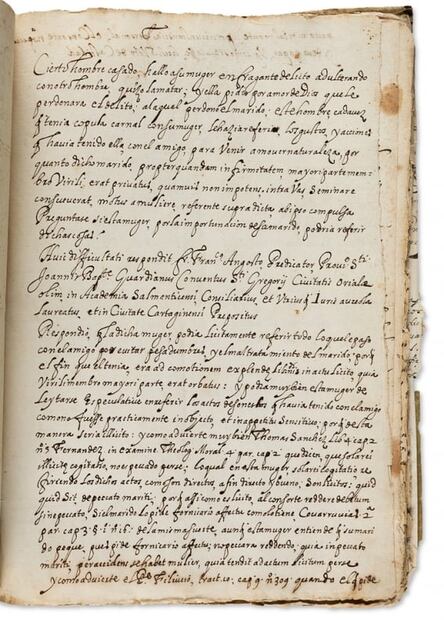 Cierto hombre casado, hallo a su muger en fragante delicto adulterando
con otro hombre, quiso la matar, y ella pidio por amor de Dios que le
perdonara el delito, a la qual perdono el marido; este hombre cada vez
q tenia copula carnal con su muger, le hazia referir los gustos, y acciones
q havia tenido ella con el amigo, para venir a mover naturaleza, por
quanto dicho marido, propter quandam infirmitatem, mayori parte mem=
bro Virili, erat privatus, quamvis non impotens, intra Vas, Seminare
consueverat, motus a muliere, referente supradicta ab ipso compulsa
Preguntase si esta muger, por la importunacion de su marido, podria referir
dichas cosas?
Huic difficultati respondit fr Franco Angosto Predicator, Provae Sti
Joannis Baptae Guardianus Conventus Sti Gregorij Civitatis Oriolae
olim, in Academia Salmanticensi Consiliarius, et Utriusq Juris aureola
Laureatus, et in Civitate Cartaginensi Prepositus
Respondio, q la dicha muger, podia licitamente referir todo lo que paso
con el amigo por evitar pesadumbres, y el mal tratamiento del marido, porq
el fin que el tenia, era ad comotionem explende libidinis in actu licito, quia
Virili membro mayori parte, erat orbatus: y podia muy bien esta muger de
leytarse especulative en referir los actos des onestos q havia tenido con el amigo
como no fuesse practicamente in objecto, et in appetitu Sensitivo; porq de esta
manera seria illicito: y como advierte muy bien Thomas Sanchez Lib 4 cap 2
n 5 Fernandez, in examine Theolog. Moral. 4 par. cap 2
illicita cogitatio, non peccado perse; lo qual en esta muger, sola la cogitatio
firiendo los dichos actos, con son directa, a fin directo y bueno, son licitos; quid
quid sit, de pecato mariti; porq assi como es licito, al consorte reddere debitum
in pecato, si el marido lo pide fornicario affectu como lo tiene Covarruvias 2a
par. cap 3. § 1. n 6: de la misma suerte, aunq esta muger entiende q su mari-
do peque, pues pide fornicario affectu, no pecara reddendo, quia in peccato
mariti, per accidens se habet mulier, quia tendit ad actum licitum per se
y como advierte el Pe Filiucio, tract. 10. cap 9. n 309. quando el q pide